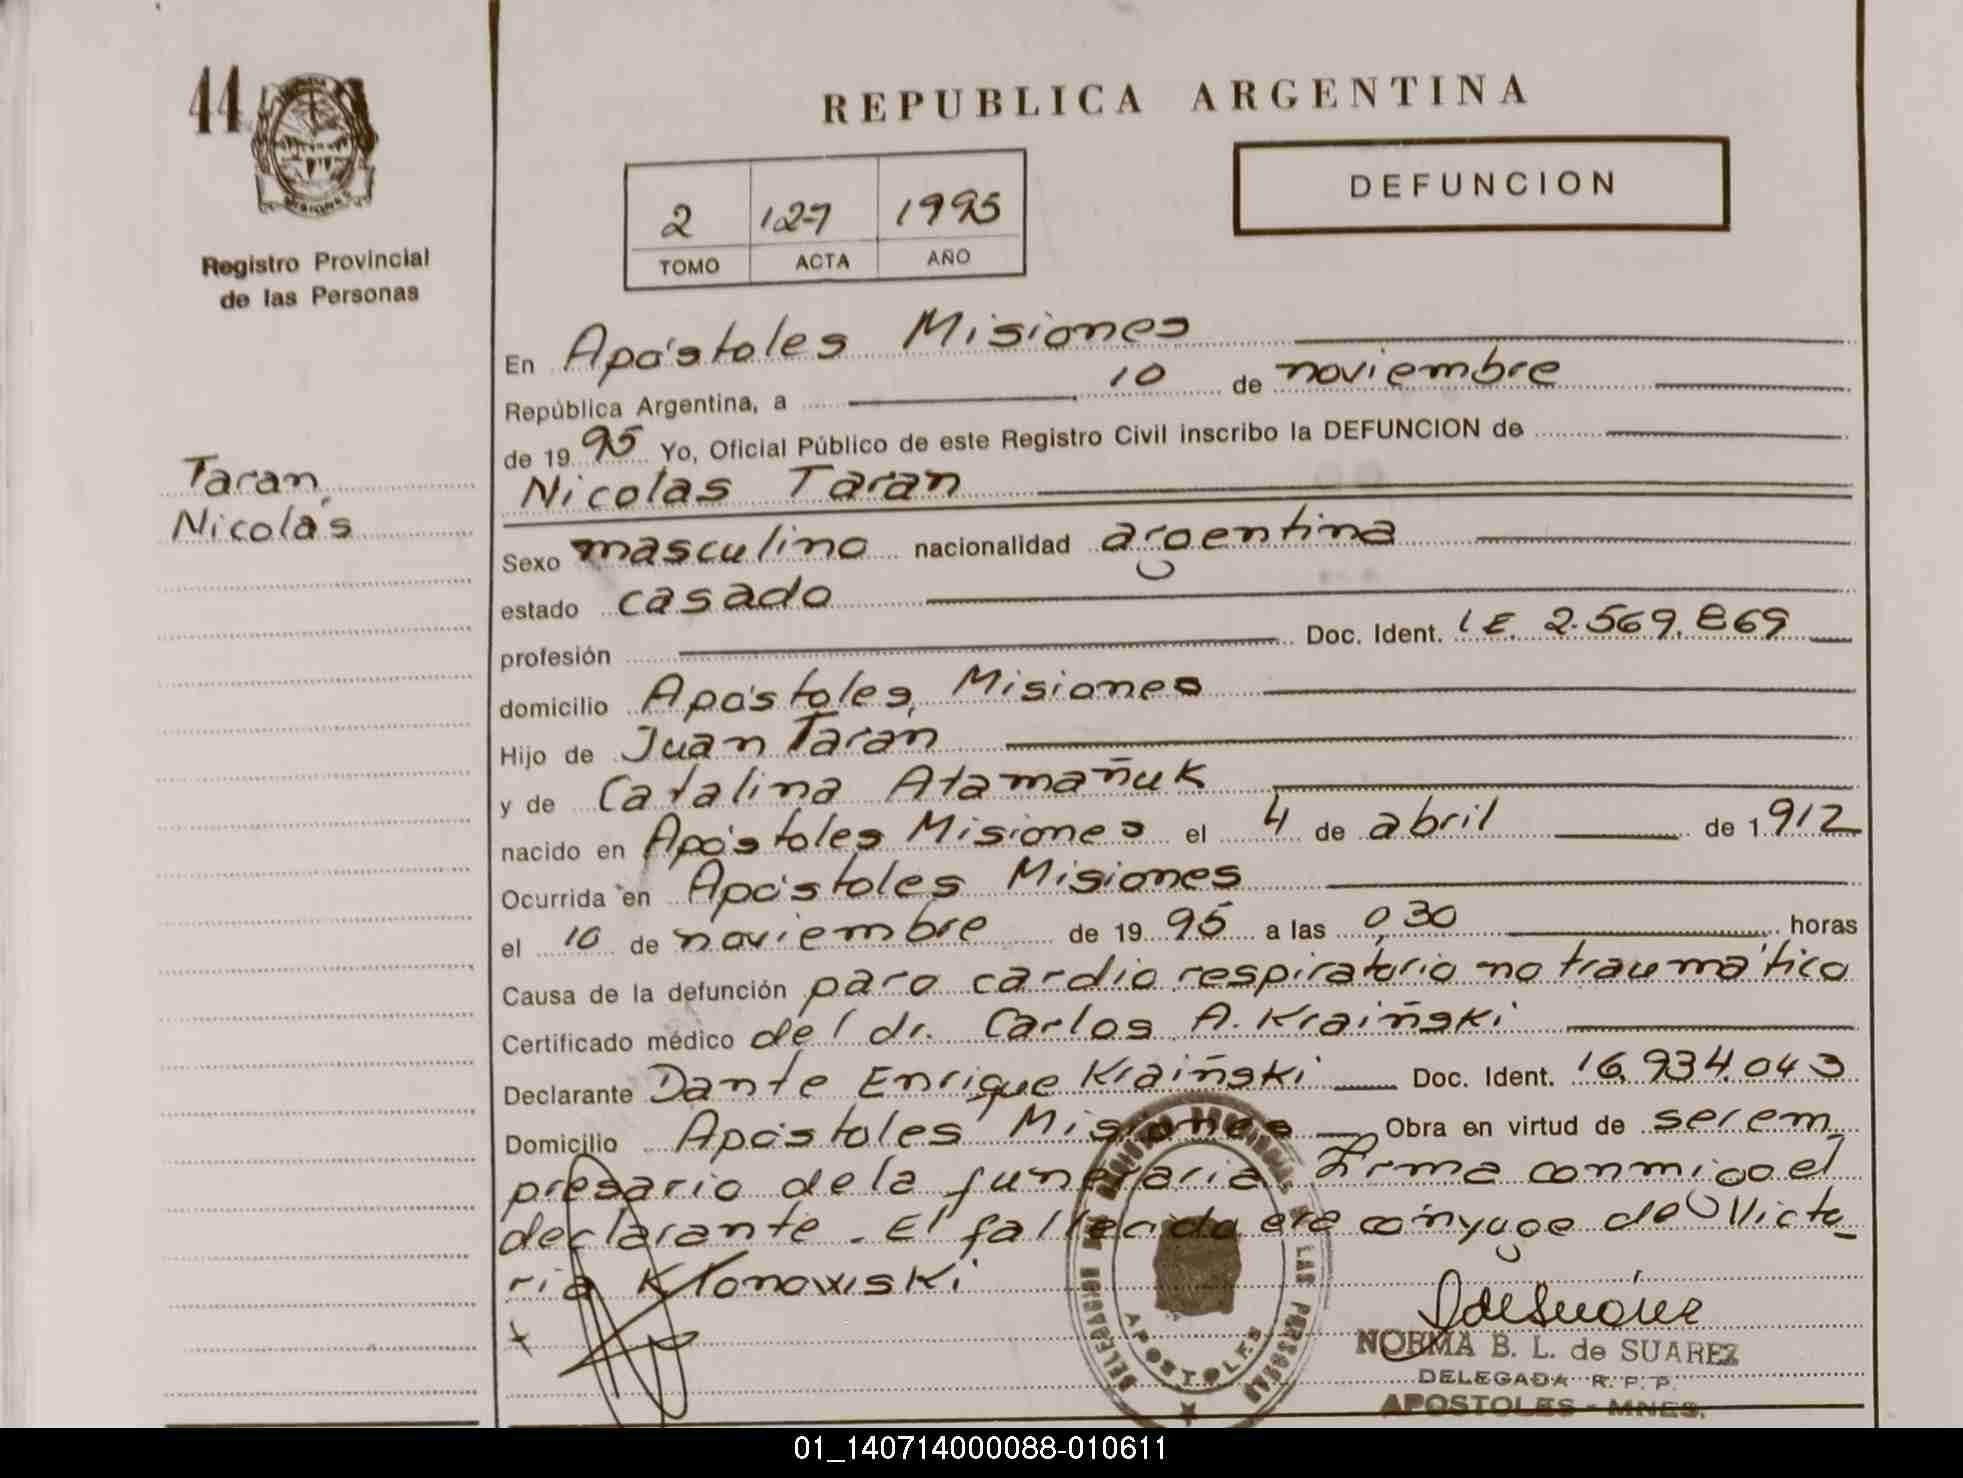 44
REPUBLICA ARGENTINA
DEFUNCION
2 127 1995
TOMO ACTA AÑO
Registro Provincial
de las Personas
Taran,
Nicolás
En Apóstoles Misiones
República Argentina, a 10 de noviembre
de 1995 Yo, Oficial Público de este Registro Civil inscribo la DEFUNCION de
Nicolas Taran
Sexo masculino nacionalidad argentina
estado casado
profesión Doc. Ident. L E. 2.569.869
domicilio Apóstoles, Misiones
Hijo de Juan Taran
y de Catalina Atamañuk
nacido en Apóstoles Misiones el 4 de abril de 1912
Ocurrida en Apóstoles Misiones
el 10 de noviembre de 1995 a las 0,30 horas
Causa de la defunción paro cardio respiratorio no traumático
Certificado médico del dr. Carlos A. Kraiñski
Declarante Dante Enrique Kraiñski Doc. Ident. 16.934.043
Domicilio Apóstoles Misiones Obra en virtud de ser em_
presario de la funeraria. Firma conmigo el
declarante. El fallecido era cónyuge de Victo_
ria Klonowski
NORMA B. L. de SUAREZ
DELEGADA R. P. P.
APOSTOLES - MNES.
LAS PERSONAS
APOSTOLES
01_140714000088-010611